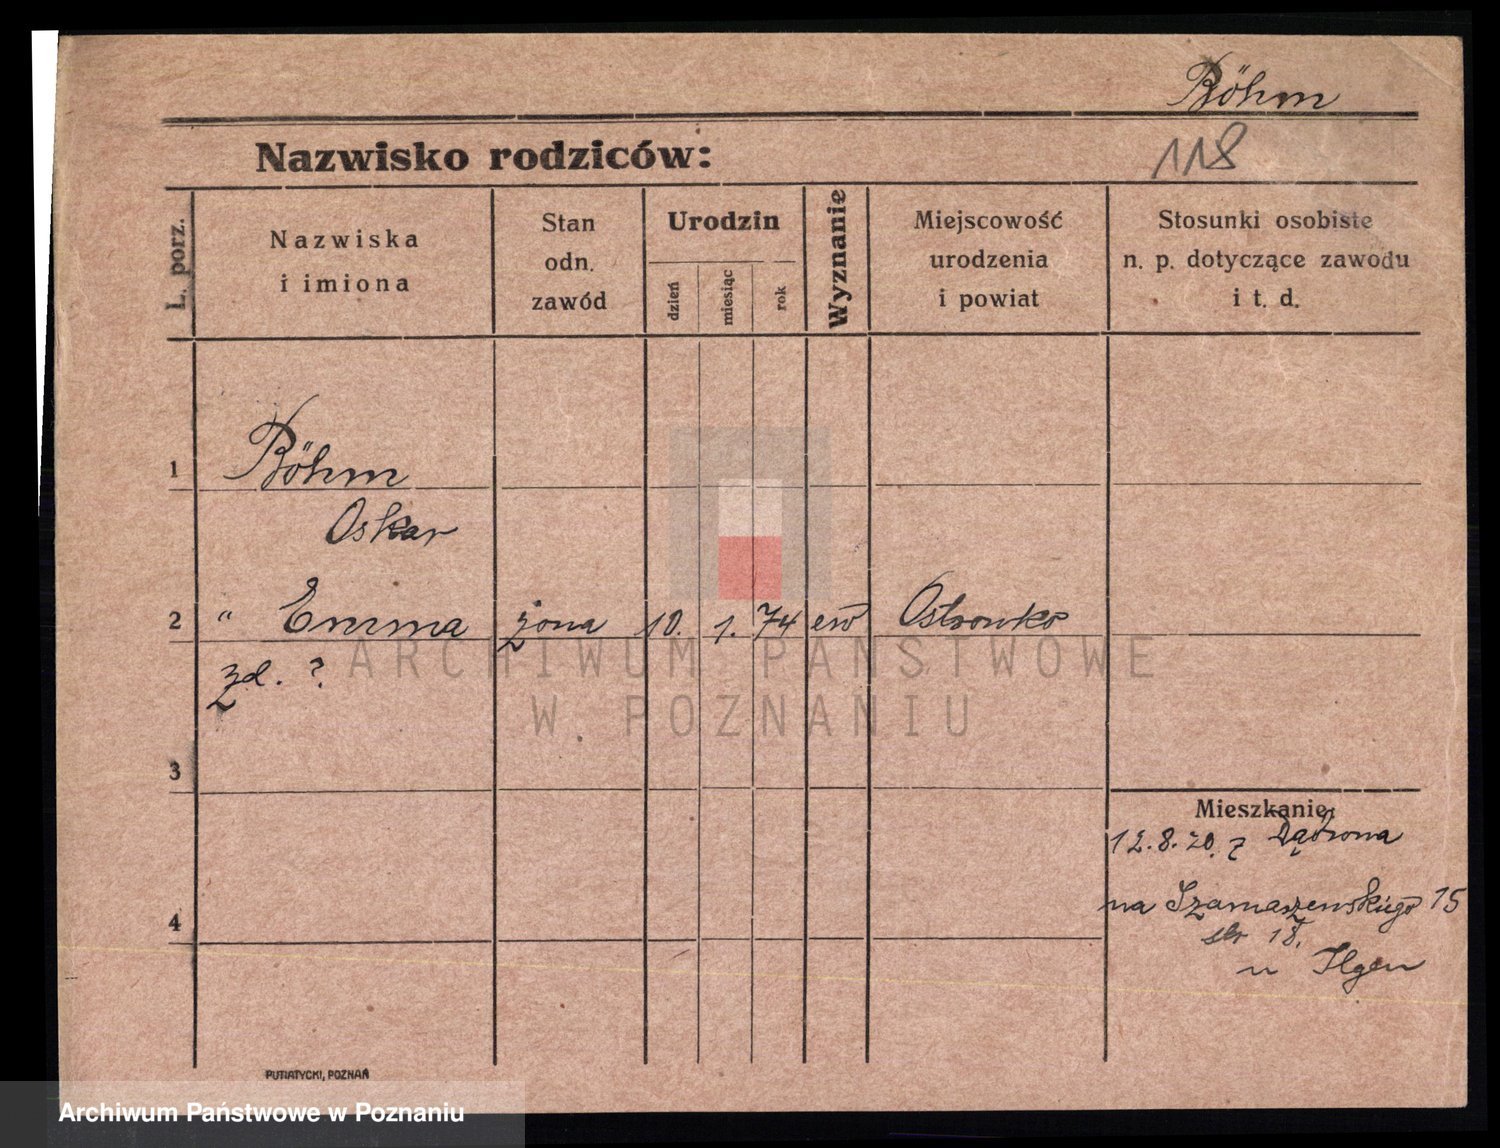 Böhm
118
Nazwisko rodziców:
L. porz.
Nazwiska
i imiona
Stan
odn.
zawód
Urodzin
dzień
miesiąc
rok
Wyznanie
Miejscowość
urodzenia
i powiat
Stosunki osobiste
n. p. dotyczące zawodu
i t. d.
1
Böhm
Oskar
2 " Emma żona 10. 1. 74 ew Ostrowko
zd. ?
ARCHIWUM PAŃSTWOWE
W POZNANIU
3
Mieszkanie,
12.8.20. z
na Szamaszewskiego 15
18.
u Ilgen
4
PUTIATYCKI, POZNAŃ
Archiwum Państwowe w Poznaniu